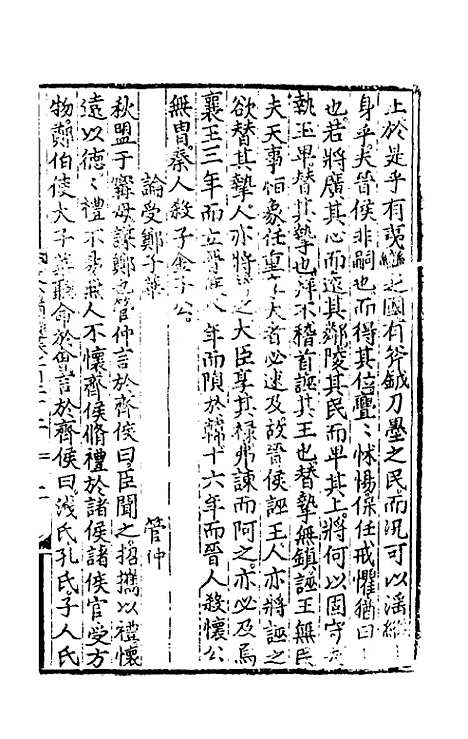 上於是乎有夷之國有斧鉞刀墨之民而況可以淫縱
身乎夫晉侯非嗣也而得其位亹亹怵惕保任戒懼猶曰
也若將廣其心而遠其鄰陵其民而卑其上將何以固守夫
執玉卑替其摯也拜不稽首誣其王也替摯無鎮誣王無民
夫天事恒象任重大者必速及故晉侯誣王人亦將誣之
欲替其摯人亦將之大臣享其祿弗諫而阿之亦必及焉
襄王三年而立晉侯八年而隕於韓十六年而晉人殺懷公
無胄秦人殺子金子公
論受鄭子華 管仲
秋盟于甯母謀鄭也管仲言於齊侯曰臣聞之招攜以禮懷
遠以德德禮不易無人不懷齊侯脩禮於諸侯諸侯官受方
物鄭伯使大子華聽命於會言於齊侯曰洩氏孔氏子人氏